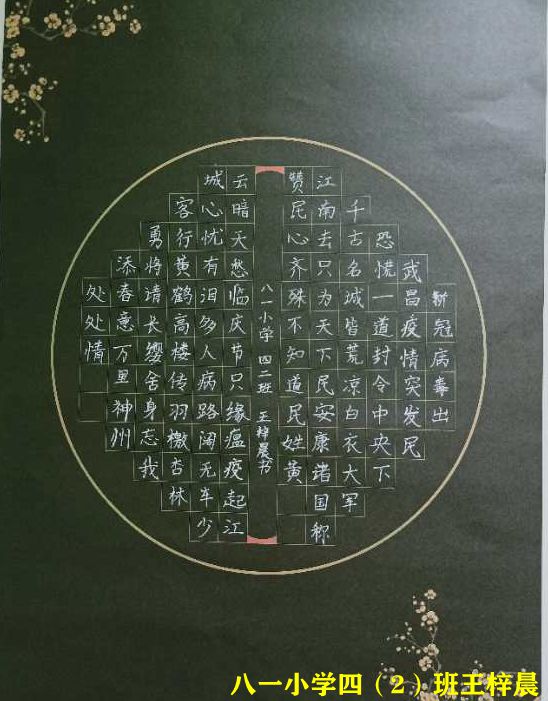 新冠病毒出
武昌疫情突发民
恐慌一道封令中央下
千古名城皆荒凉白衣大军
江南去只为天下民安康诸国称
赞民心齐殊不知道民姓黄
八一小学 四二班 王梓晨书
云暗天愁临庆节只缘瘟疫起江
城心忧有泪多人病路阔无车少
客行黄鹤高楼传羽檄杏林
勇将请长缨舍身忘我
添春意万里神州
处处情
八一小学四（2）班王梓晨